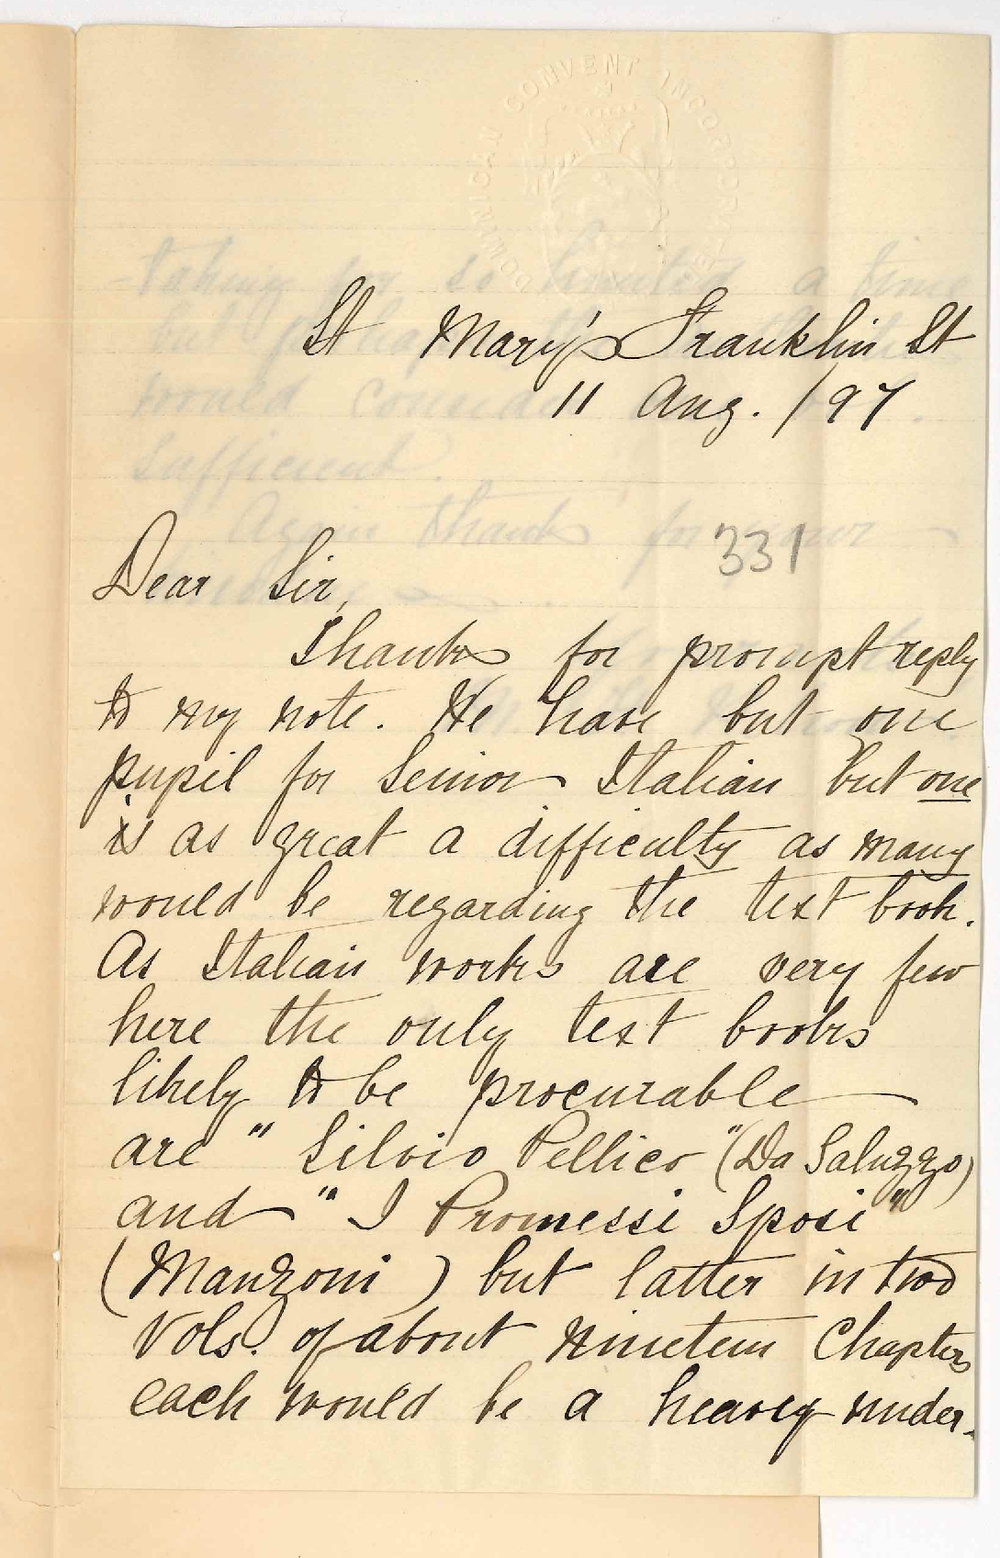 DOMINICAN CONVENT INCORPORATED
St Mary's Franklin St
11 Aug. /97
331
Dear Sir,
Thanks for prompt reply
to my note. We have but one
pupil for Senior Italian but one
is as great a difficulty as many
would be regarding the text book.
As Italian works are very few
here the only text books
likely to be procurable
are " Silvio Pellico " (Da Saluzzo)
and " I Promessi Sposi "
(Manzoni) but latter in two
Vols. of about nineteen Chapters
each would be a heavy under-